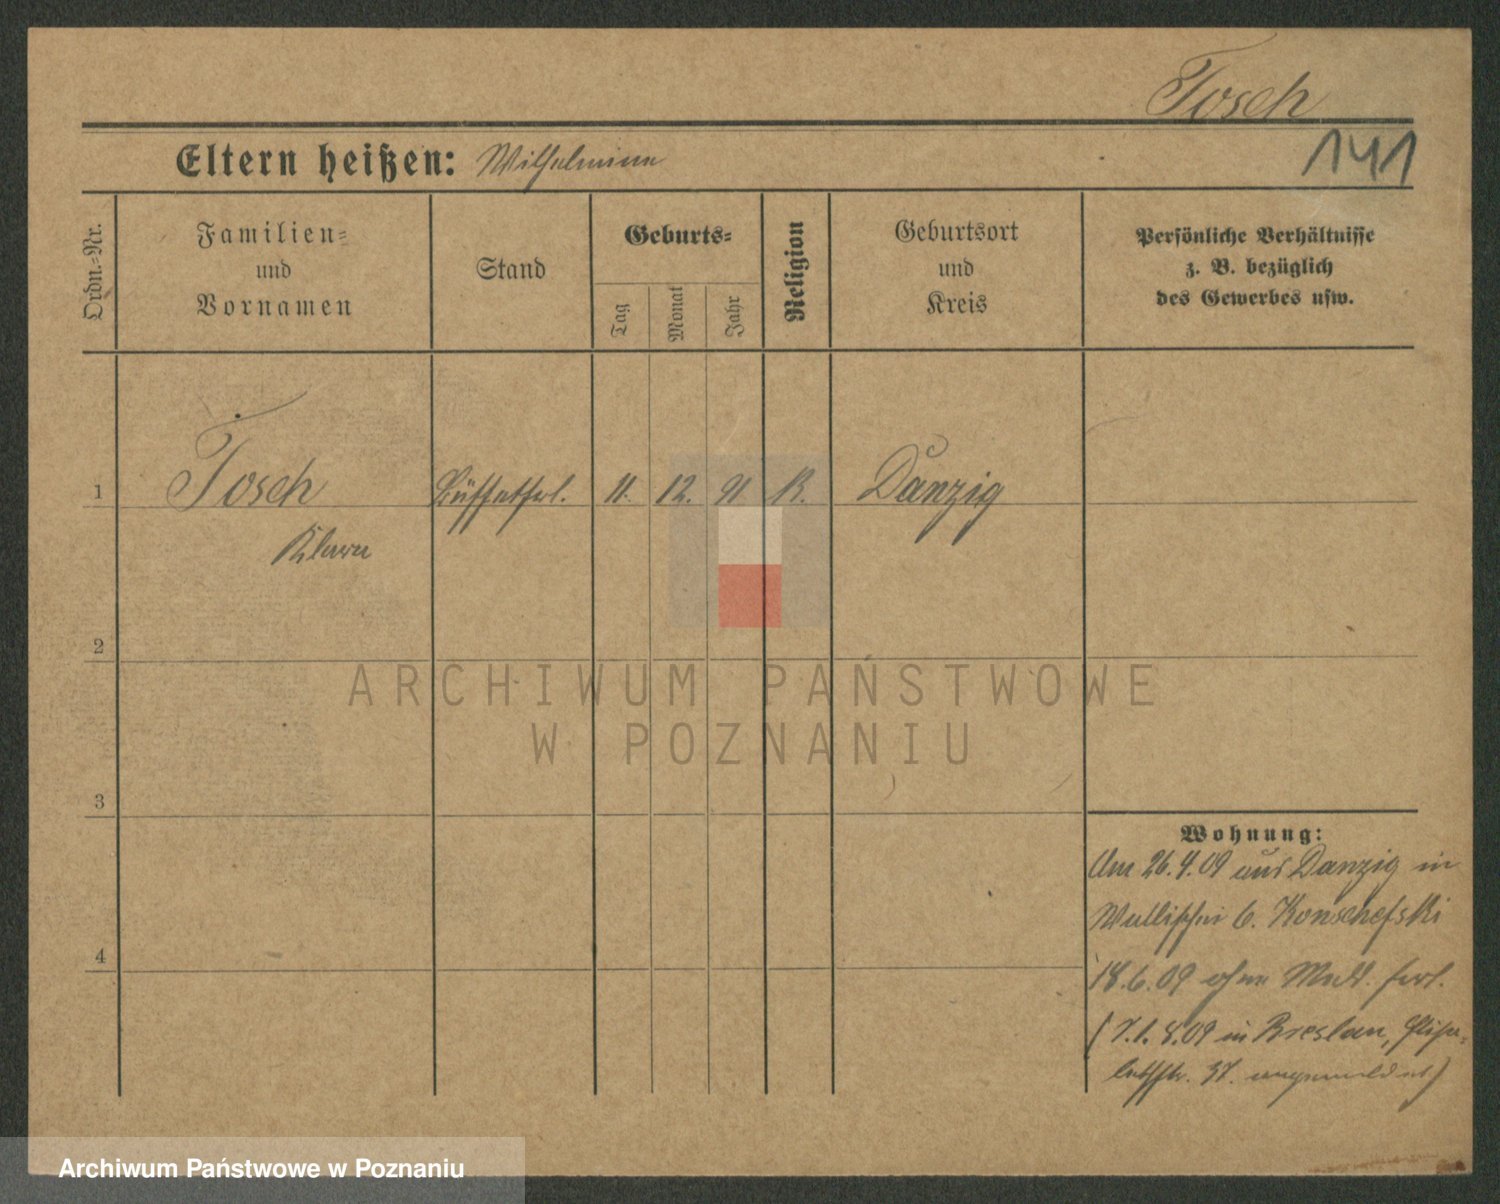 Tosch
141
Eltern heißen: Wilhelmine
Ordn.-Nr.
Familien-
und
Vornamen
Stand
Geburts-
Tag
Monat
Jahr
Religion
Geburtsort
und
Kreis
Persönliche Verhältnisse
z. B. bezüglich
des Gewerbes usw.
1
Tosch
Klara
Büffetfrl.
11.
12.
K.
Danzig
2
3
4
ARCHIWUM PAŃSTWOWE
W POZNANIU
Wohnung:
Am 26.4.09 aus Danzig in
Wallischei 6. Konschefski
18.6.09 ohne Meld. fort.
in Breslau, Elisa-
bethstr. 37. angemeldet)
Archiwum Państwowe w Poznaniu